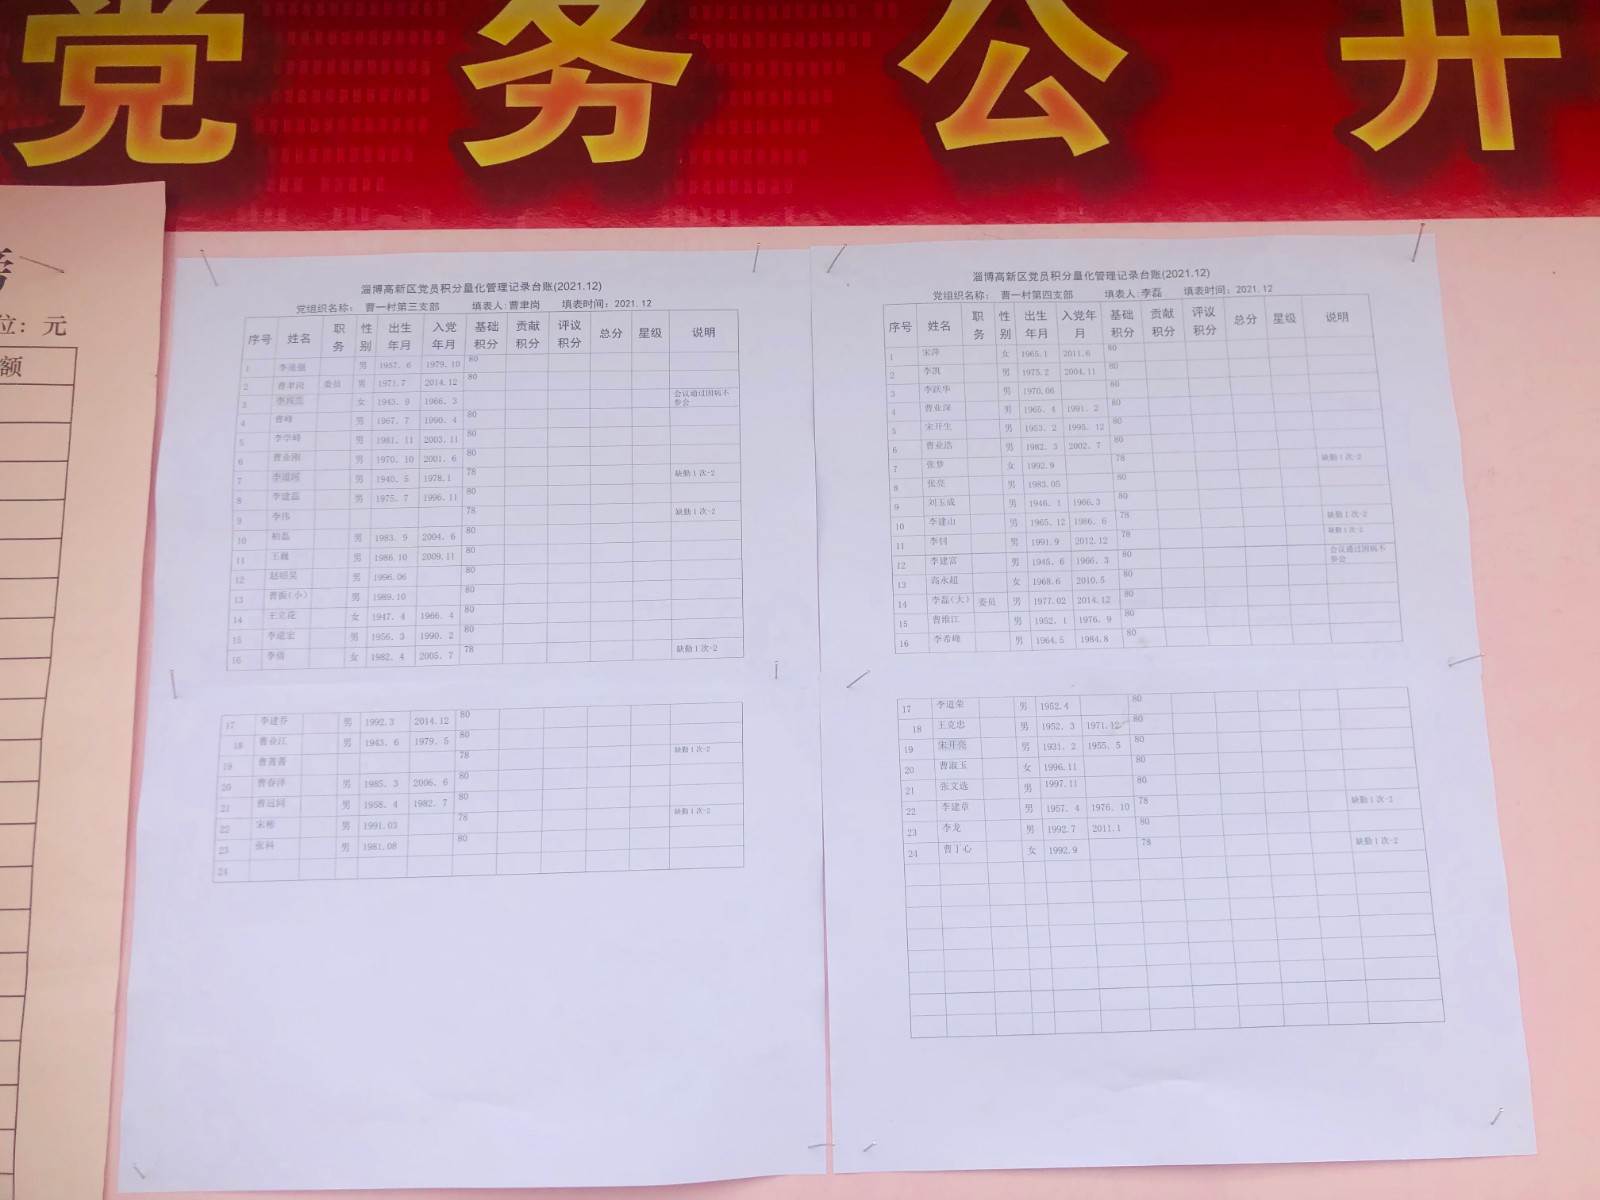 党务公开
位：元
额
淄博高新区党员积分量化管理记录台账(2021.12)
党组织名称： 曹一村第三支部 填表人:曹聿岗 填表时间：2021.12
序号 姓名 职务 性别 出生年月 入党年月 基础积分 贡献积分 评议积分 总分 星级 说明
1 李道强 男 1957.6 1979.10 80
2 曹聿岗 委员 男 1971.7 2014.12 80
3 女 1943.9 1966.3 会议通过因病不参会
4 曹峰 男 1967.7 1990.4 80
5 李学峰 男 1981.11 2003.11 80
6 曹业刚 男 1970.10 2001.6 80
7 男 1940.5 1978.1 78 缺勤1次-2
8 李建磊 男 1975.7 1996.11 80
9 李伟 78 缺勤1次-2
10 柏磊 男 1983.9 2004.6 80
11 王巍 男 1986.10 2009.11 80
12 男 1996.06 80
13 曹振(小) 男 1989.10 80
14 王立花 女 1947.4 1966.4 80
15 李道宏 男 1956.3 1990.2 80
16 李倩 女 1982.4 2005.7 78 缺勤1次-2
17 李建乔 男 1992.3 2014.12 80
18 曹业江 男 1943.6 1979.5 80
19 曹菁菁 78 缺勤1次-2
20 曹春洋 男 1985.3 2006.6 80
21 曹远同 男 1958.4 1982.7 80
22 宋彬 男 1991.03 78 缺勤1次-2
23 张科 男 1981.08 80
24
淄博高新区党员积分量化管理记录台账(2021.12)
党组织名称： 曹一村第四支部 填表人:李磊 填表时间：2021.12
序号 姓名 职务 性别 出生年月 入党年月 基础积分 贡献积分 评议积分 总分 星级 说明
1 宋萍 女 1965.1 2011.6 80
2 李凯 男 1975.2 2004.11 80
3 李跃华 男 1970.06 80
4 曹业深 男 1965.4 1991.2 80
5 宋开生 男 1953.2 1995.12 80
6 曹业浩 男 1982.3 2002.7 80
7 张梦 女 1992.9 78 缺勤1次-2
8 张亮 男 1983.05 80
9 刘玉成 男 1946.1 1966.3 80
10 李建山 男 1965.12 1986.6 78 缺勤1次-2
11 李钊 男 1991.9 2012.12 78 缺勤1次-2
12 李建富 男 1945.6 1966.3 80 会议通过因病不参会
13 高永超 女 1968.6 2010.5 80
14 李磊(大) 委员 男 1977.02 2014.12 80
15 曹维江 男 1952.1 1976.9 80
16 李希峰 男 1964.5 1984.8 80
17 李道荣 男 1952.4 80
18 王克忠 男 1952.3 1971.12 80
19 宋开亮 男 1931.2 1955.5 80
20 曹淑玉 女 1996.11 80
21 张文选 男 1997.11 80
22 李建章 男 1957.4 1976.10 78 缺勤1次-2
23 李龙 男 1992.7 2011.1 80
24 曹丁心 女 1992.9 78 缺勤1次-2